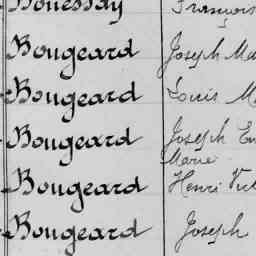 Bouessay François
Bougeard Joseph Ma
Bougeard Louis M
Bougeard Joseph Eu
Marie
Bougeard Henri Vic
Bougeard Joseph